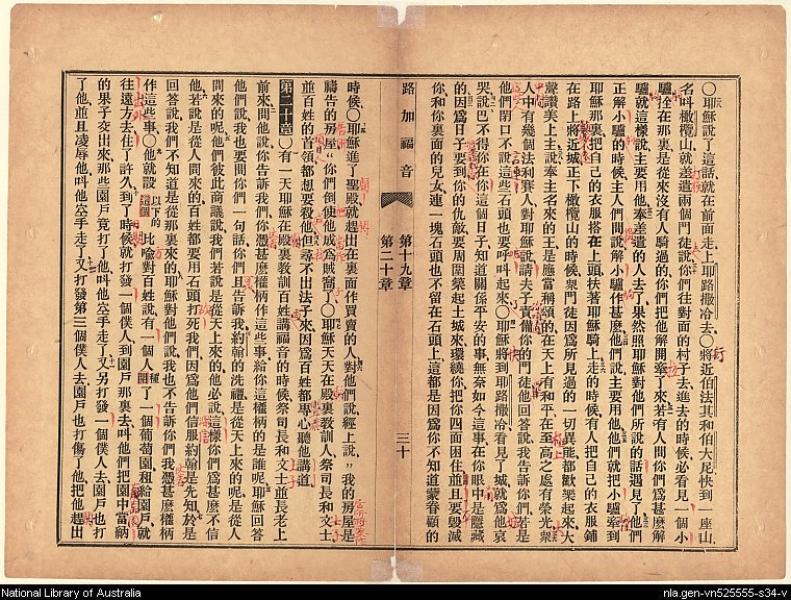 〇耶穌說了這話就在前面走上耶路撒冷去〇將近伯法其和伯大尼快到一座山
名叫橄欖山就差遣兩個門徒說你們往對面的村子去進去的時候必看見一個小
驢拴在那裏是從來沒有人騎過的你們把他解開牽了來若有人問你們爲甚麽解
驢就這樣說主要用他奉差遣的人去了果然照耶穌對他們所說的話遇見了他們
正解小驢的時候主人們問說解小驢作甚麽他們說主要用他他們就把小驢牽到
耶穌那裏把自己的衣服搭在上頭扶著耶穌騎上走的時候有人把自己的衣服鋪
在路上將近城正下橄欖山的時候衆門徒因爲所見過的一切異能都歡樂起來大
聲讚美上主說奉主名來的王是應當稱頌的在天上有和平在至高之處有榮光衆
人中有幾個法利賽人對耶穌說請夫子責備你的門徒他回答說我告訴你們若是
他們閉口不說這些石頭也要呼叫起來〇耶穌將到耶路撒冷看見了城就爲他哀
哭說巴不得你在你這個日子知道關係平安的事無奈如今這事在你眼中是隱藏
的因爲日子要到你的仇敵要周圍築起土城來環繞你把你四面困住並且要毀滅
你和你裏面的兒女連一塊石頭也不留在石頭上這都是因爲你不知道蒙眷顧的
路加福音
第十九章
第二十章
三十
時候〇耶穌進了聖殿就趕出在裏面作買賣的人對他們說經上說我的房屋是
禱告的房屋你們倒使他成爲賊窩了〇耶穌天天在殿裏教訓人祭司長和文士
並百姓的首領都想要殺他但尋不出法子來因爲百姓都專心聽他講道
第二十章〇有一天耶穌在殿裏教訓百姓講福音的時候祭司長和文士並長老上
前來問他說你告訴我們你憑甚麽權柄作這些事給你這權柄的是誰呢耶穌回答
他們說我也要問你們一句話你們且告訴我約翰的洗禮是從天上來的呢是從人
間來的呢他們彼此商議說我們若說是從天上來的他必說這樣你們爲甚麽不信
他若說是從人間來的百姓都要用石頭打死我們因爲他們信服約翰是先知於是
回答說我們不知道是從那裏來的耶穌對他們說我也不告訴你們我憑甚麽權柄
作這些事〇他就設以下的比喻對百姓說有一個人了一個葡萄園租給園戶就
往遠方去住了許久到了時候就打發一個僕人到園戶那裏去叫他們把園中當納
的果子交出來那些園戶竟打了他叫他空手走了又另打發一個僕人去園戶也打
了他並且凌辱他叫他空手走了又打發第三個僕人去園戶也打傷了他把他趕出
National Library of Australia
nla.gen-vn525555-s34-v